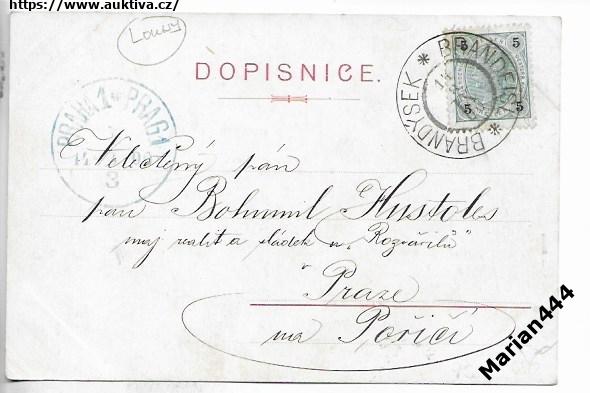 https://www.auktiva.cz/
Louny
DOPISNICE.
BRANDEIS * BRANDÝSEK *
5 5
5 5
PRAHA 1 PRAG 1
3
Veletěný pán
pan Bohumil Hustoles
maj realit a sládek u „Rozvařilů"
v Praze
na Poříčí
Marian444